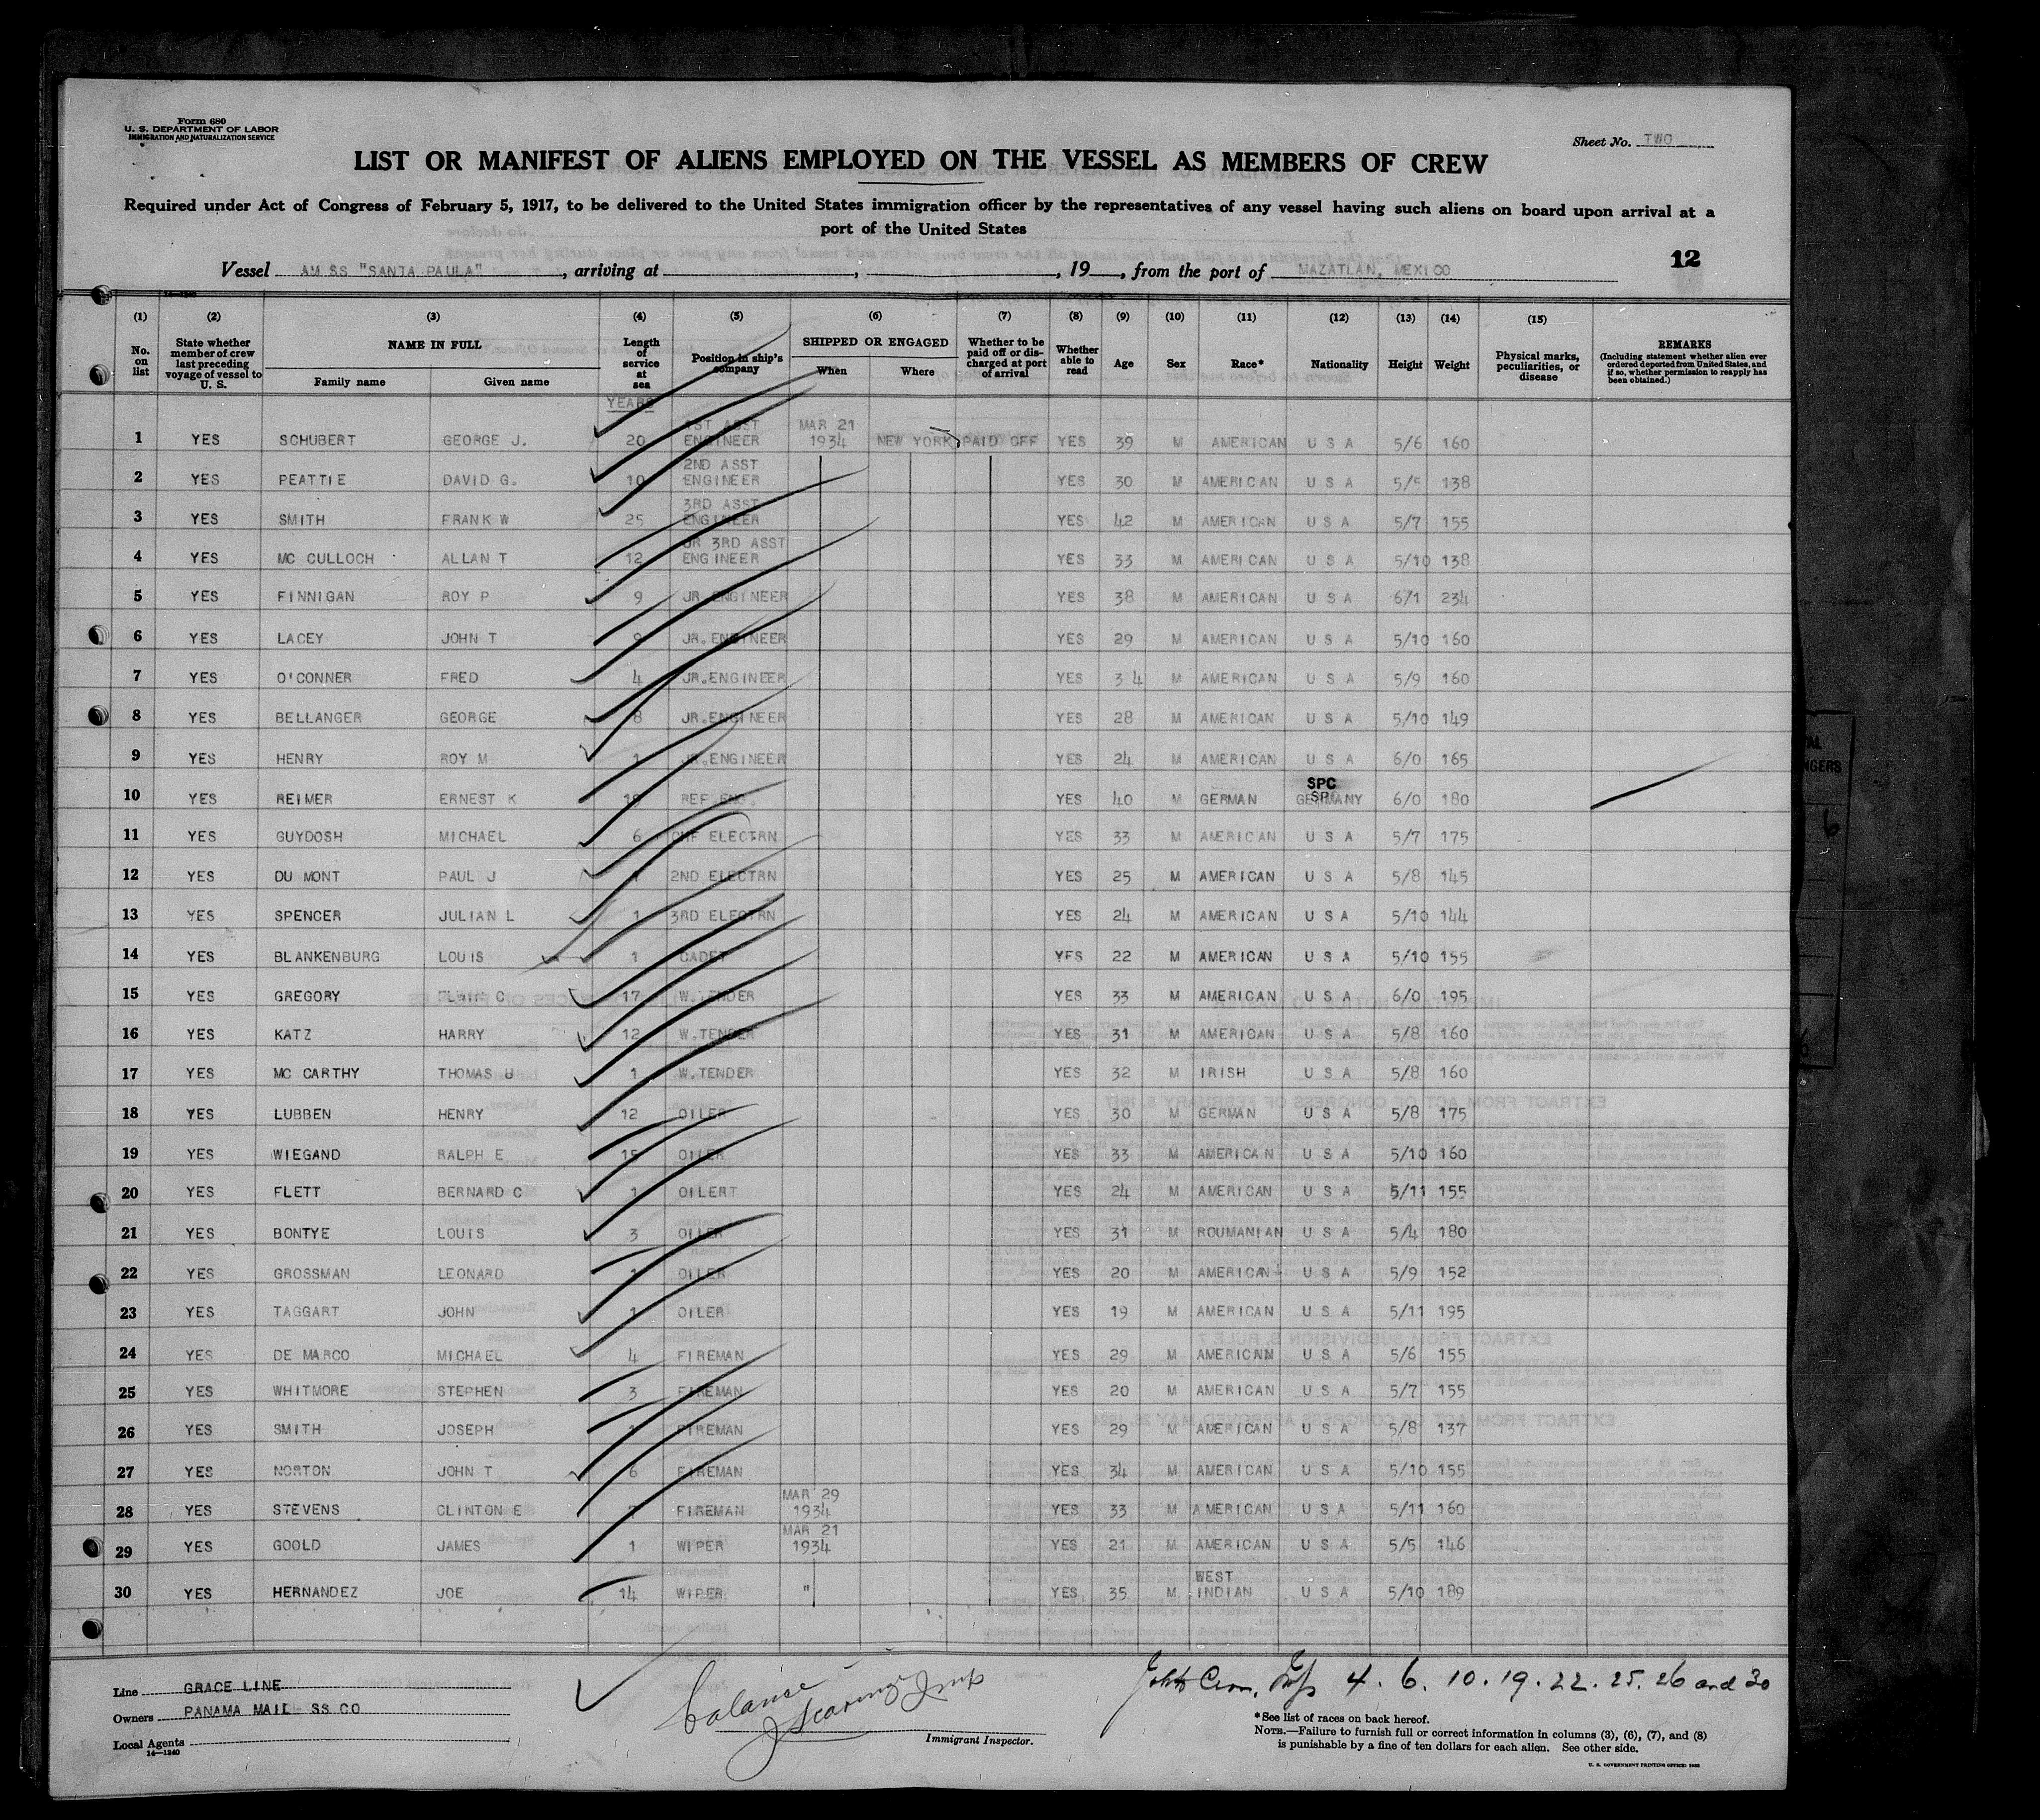 Form 680
U. S. DEPARTMENT OF LABOR
IMMIGRATION AND NATURALIZATION SERVICE
Sheet No. TWO
LIST OR MANIFEST OF ALIENS EMPLOYED ON THE VESSEL AS MEMBERS OF CREW
Required under Act of Congress of February 5, 1917, to be delivered to the United States immigration officer by the representatives of any vessel having such aliens on board upon arrival at a
port of the United States
Vessel AM SS "SANTA PAULA", arriving at , , 19 , from the port of MAZATLAN, MEXICO
12
14—1240
(1) (2) (3) (4) (5) (6) (7) (8) (9) (10) (11) (12) (13) (14) (15)
No. on list State whether member of crew last preceding voyage of vessel to U. S. NAME IN FULL Family name Given name Length of service at sea Position in ship's company SHIPPED OR ENGAGED When Where Whether to be paid off or discharged at port of arrival Whether able to read Age Sex Race* Nationality Height Weight Physical marks, peculiarities, or disease REMARKS (Including statement whether alien ever ordered deported from United States, and if so, whether permission to reapply has been obtained.)
YEARS
1 YES SCHUBERT GEORGE J. 20 1ST ASST ENGINEER MAR 21 1934 NEW YORK PAID OFF YES 39 M AMERICAN U S A 5/6 160
2 YES PEATTIE DAVID G. 10 2ND ASST ENGINEER YES 30 M AMERICAN U S A 5/5 138
3 YES SMITH FRANK W 25 3RD ASST ENGINEER YES 42 M AMERICAN U S A 5/7 155
4 YES MC CULLOCH ALLAN T 12 JR 3RD ASST ENGINEER YES 33 M AMERICAN U S A 5/10 138
5 YES FINNIGAN ROY P 9 JR ENGINEER YES 38 M AMERICAN U S A 6/1 234
6 YES LACEY JOHN T 9 JR. ENGINEER YES 29 M AMERICAN U S A 5/10 160
7 YES O'CONNER FRED 4 JR.ENGINEER YES 34 M AMERICAN U S A 5/9 160
8 YES BELLANGER GEORGE 8 JR.ENGINEER YES 28 M AMERICAN U S A 5/10 149
9 YES HENRY ROY M 1 JR.ENGINEER YES 24 M AMERICAN U S A 6/0 165
10 YES REIMER ERNEST K REF ENG. YES 40 M GERMAN SPC SPC GERMANY 6/0 180
11 YES GUYDOSH MICHAEL 6 CHF ELECTRN YES 33 M AMERICAN U S A 5/7 175
12 YES DU MONT PAUL J 2ND ELECTRN YES 25 M AMERICAN U S A 5/8 145
13 YES SPENCER JULIAN L 1 3RD ELECTRN YES 24 M AMERICAN U S A 5/10 144
14 YES BLANKENBURG LOUIS 1 CADET YES 22 M AMERICAN U S A 5/10 155
15 YES GREGORY ELWIN C 17 W.TENDER YES 33 M AMERICAN U S A 6/0 195
16 YES KATZ HARRY 12 W.TENDER YES 31 M AMERICAN U S A 5/8 160
17 YES MC CARTHY THOMAS 1 W.TENDER YES 32 M IRISH U S A 5/8 160
18 YES LUBBEN HENRY 12 OILER YES 30 M GERMAN U S A 5/8 175
19 YES WIEGAND RALPH E 15 OILER YES 33 M AMERICAN U S A 5/10 160
20 YES FLETT BERNARD C 1 OILERT YES 24 M AMERICAN U S A 5/11 155
21 YES BONTYE LOUIS 3 OILER YES 31 M ROUMANIAN U S A 5/4 180
22 YES GROSSMAN LEONARD 1 OILER YES 20 M AMERICAN U S A 5/9 152
23 YES TAGGART JOHN 1 OILER YES 19 M AMERICAN U S A 5/11 195
24 YES DE MARCO MICHAEL 4 FIREMAN YES 29 M AMERICAN U S A 5/6 155
25 YES WHITMORE STEPHEN 3 FIREMAN YES 20 M AMERICAN U S A 5/7 155
26 YES SMITH JOSEPH FIREMAN YES 29 M AMERICAN U S A 5/8 137
27 YES NORTON JOHN T 6 FIREMAN YES 34 M AMERICAN U S A 5/10 155
28 YES STEVENS CLINTON E FIREMAN MAR 29 1934 YES 33 M AMERICAN U S A 5/11 160
29 YES GOOLD JAMES 1 WIPER MAR 21 1934 YES 21 M AMERICAN U S A 5/5 146
30 YES HERNANDEZ JOE 14 WIPER " YES 35 M WEST INDIAN U S A 5/10 189
Line GRACE LINE
Owners PANAMA MAIL SS CO
Local Agents
14—1240
balance
Immigrant Inspector.
4. 6. 10. 19. 22. 25. 26 and 30
*See list of races on back hereof.
NOTE.—Failure to furnish full or correct information in columns (3), (6), (7), and (8)
is punishable by a fine of ten dollars for each alien. See other side.
U. S. GOVERNMENT PRINTING OFFICE: 1932